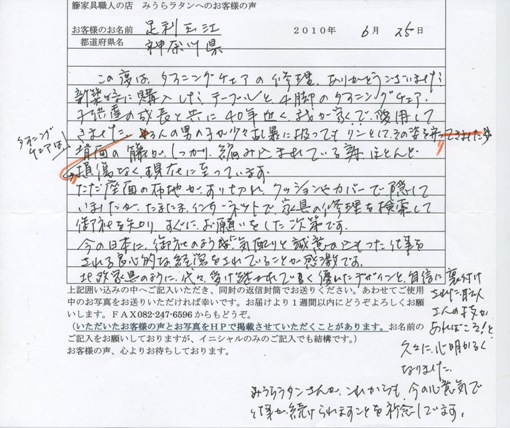 籐家具職人の店 みうらラタンへのお客様の声
お客様のお名前 足利玉江 2010年 6月 25日
都道府県名 神奈川県
この度は、ダイニングチェアの修理、ありがとうございました。
新築時に購入したテーブルと4脚のダイニングチェア。
子供達の成長と共に40年近く、我が家で愛用して
きました。 人の男の子が少々乱暴に扱っても リンとしてその姿を
ダイニングチェアは、
背面の籐が、しっかり編み込まれている為 ほとんど
損傷なく現在に至っています。
ただ座面の布地が、すり切れ、クッションやカバーで隠して
いましたが、たまたま、インターネットで、家具の修理を検索して
御社を知り、すぐに、お願いをした次第です。
今の日本に、御社のような気配りと誠意のこもった仕事を
される良心的な経営をされていることが感激です。
北欧家具のように、代々受け継がれて行く優れたデザインと、自信に裏付け
された職人さんの技があればこそ!と
久々に、心明かるくなりました。
みうらラタンさんが、これからも、今の心意気で
仕事が続けられますことを祈念しています。
上記囲い込みの中へご記入いただき、同封の返信封筒でお送りください。あわせてご使用
中のお写真をお送りいただければ幸いです。お届けより1週間以内にどうぞよろしくお願
いします。FAX082-247-6596 からもどうぞ。
(いただいたお客様の声とお写真をHPで掲載させていただくことがあります。お名前の
ご記入をお願いしておりますが、イニシャルのみのご記入でも結構です。)
お客様の声、心よりお待ちしております。